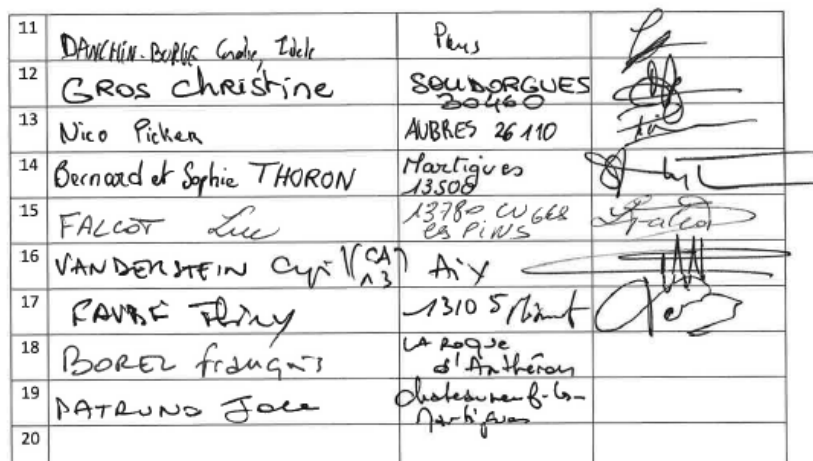 11 DANCHIN-BURGE Paris
12 GROS Christine SOUDORGUES
30460
13 Nico Picker AUBRES 26110
14 Bernard et Sophie THORON Martigues
13500
15 FALCOT Luc 13780 CUGES
LES PINS
16 VANDERSTEIN (CA Aix
13)
17 FAVRE Thierry 13105 Mimet
18 BOREL François LA ROQUE
d'Anthéron
19 PATRUNO Chateauneuf-les-
Martigues
20